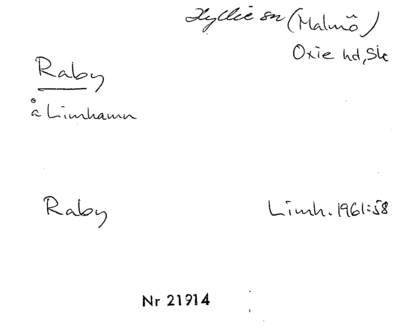 Hyllie sn (Malmö)
Oxie hd, Sk
Raby
å Limhamn
Raby
Limh. 1961:58
Nr 21914